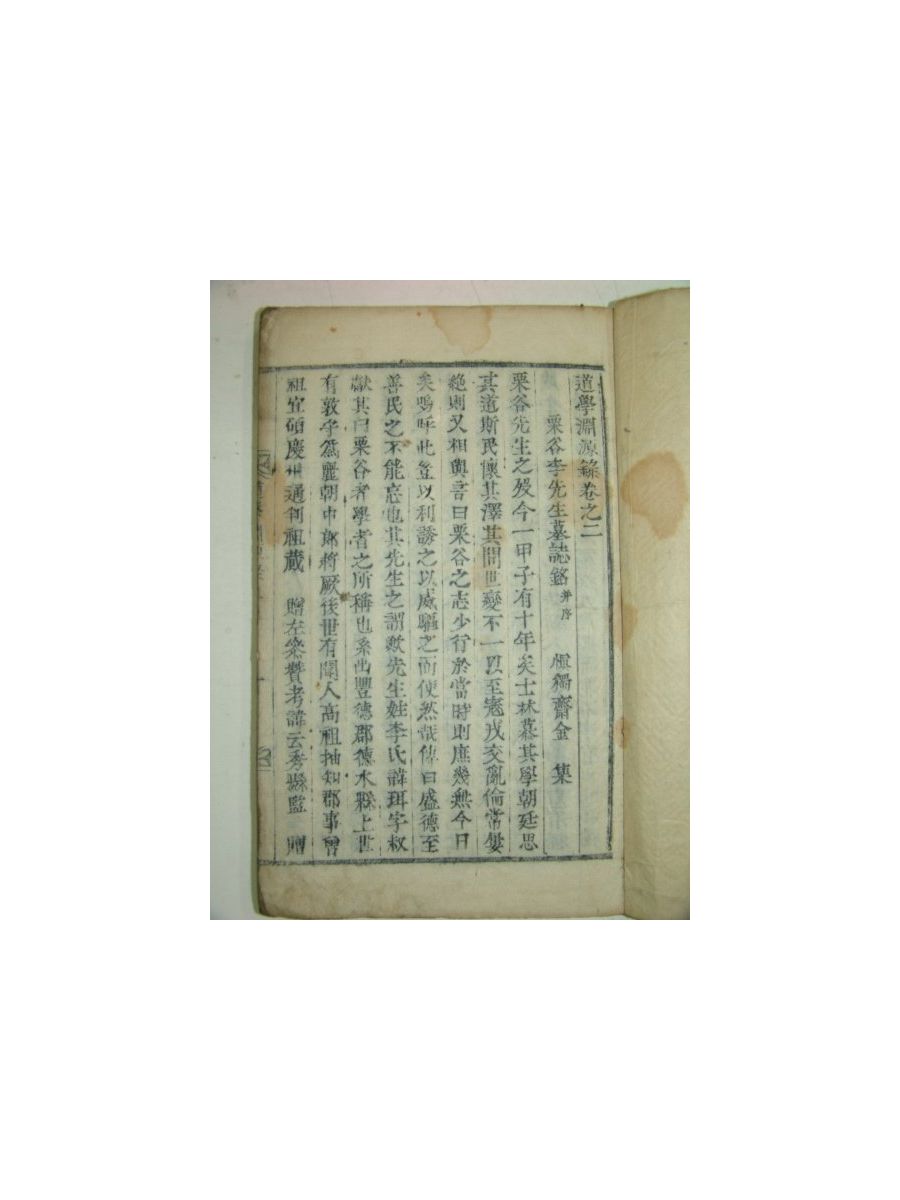 道學淵源錄卷之二
栗谷李先生墓誌銘 并序 愼獨齋金 集
栗谷先生之歿今一甲子有十年矣士林慕其學朝廷思
其道斯民懷其澤其間世變不一以至寇戎交亂倫常斁
絶則又相與言曰栗谷之志少行於當時則庶幾無今日
矣嗚呼此豈以利誘之以威驅之而使然哉傳曰盛德至
善民之不能忘也其先生之謂歟先生姓李氏諱珥字叔
獻其曰栗谷者學者之所稱也系出豐德郡德水縣上世
有敦守爲麗朝中郞將厥後世有聞人高祖抽知郡事曾
祖宜碩慶州通判祖蕆 贈左參贊考諱元秀縣監 贈